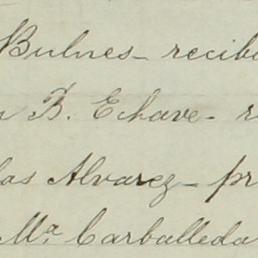 Bulnes - recib
B. Echave -
las Alvarez - pr
Mª Carballeda